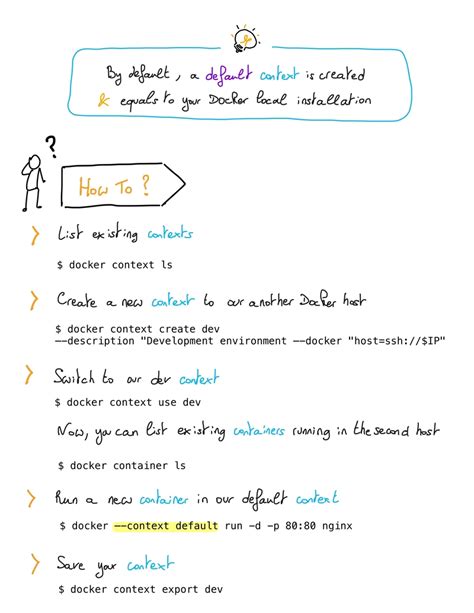 By default, a default context is created
& equals to your Docker local installation
?
How To ?
List existing contexts
$ docker context ls
Create a new context to our another Docker host
$ docker context create dev
--description "Development environment --docker "host=ssh://$IP"
Switch to our dev context
$ docker context use dev
Now, you can list existing containers running in the second host
$ docker container ls
Run a new container in our default context
$ docker --context default run -d -p 80:80 nginx
Save your context
$ docker context export dev